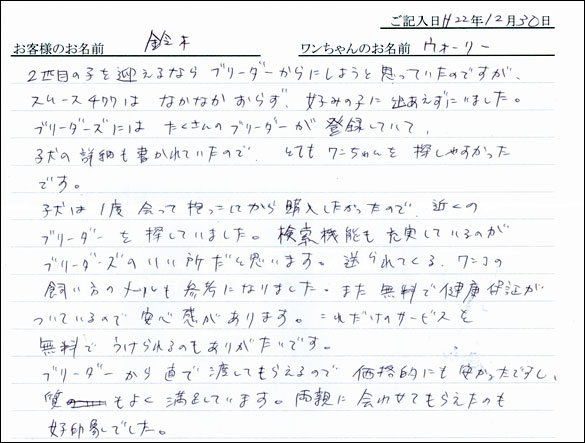 ご記入日 H22年12月30日
お客様のお名前 鈴木 ワンちゃんのお名前 ウォーリー
2匹目の子を迎えるなら ブリーダーからにしようと思っていたのですが、
スムースチワワは なかなか おらず、好みの子に 出会えずにいました。
ブリーダーズには たくさんのブリーダーが 登録していて、
子犬の詳細も書かれていたので、とても ワンちゃんを 探しやすかった
です。
子犬は 1度 会って 抱っこしてから 購入したかったので、近くの
ブリーダー を 探していました。検索機能も 充実しているのが
ブリーダーズの いい所だと思います。送られてくる、ワンコの
飼い方の メールも 参考になりました。また 無料で健康保証が
ついているので 安心感があります。これだけのサービスを
無料で うけられるのも ありがたいです。
ブリーダー から 直で 渡してもらえるので 価格的にも 安かったですし、
質 もよく 満足しています。両親に 会わせてもらえたのも
好印象でした。